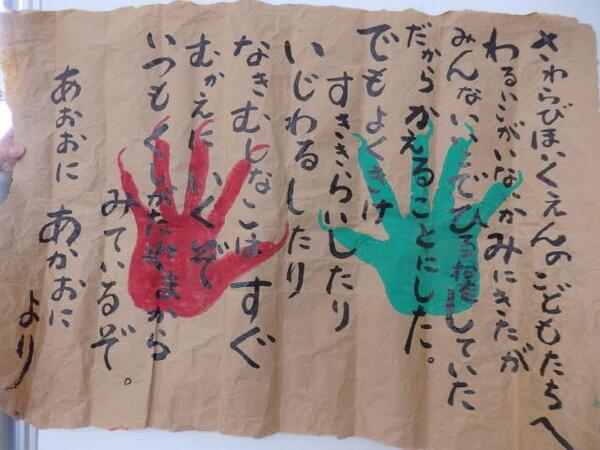 さわらびほいくえんのこどもたちへ
わるいこがいないかみにきたが
みんないいこでひるねをしていた
だからかえることにした。
でもよくきけ
すききらいしたり
いじわるしたり
なきむしなこはすぐ
むかえにいくぞ
いつもくしがたやまから
みているぞ。
あおおに あかおに
より